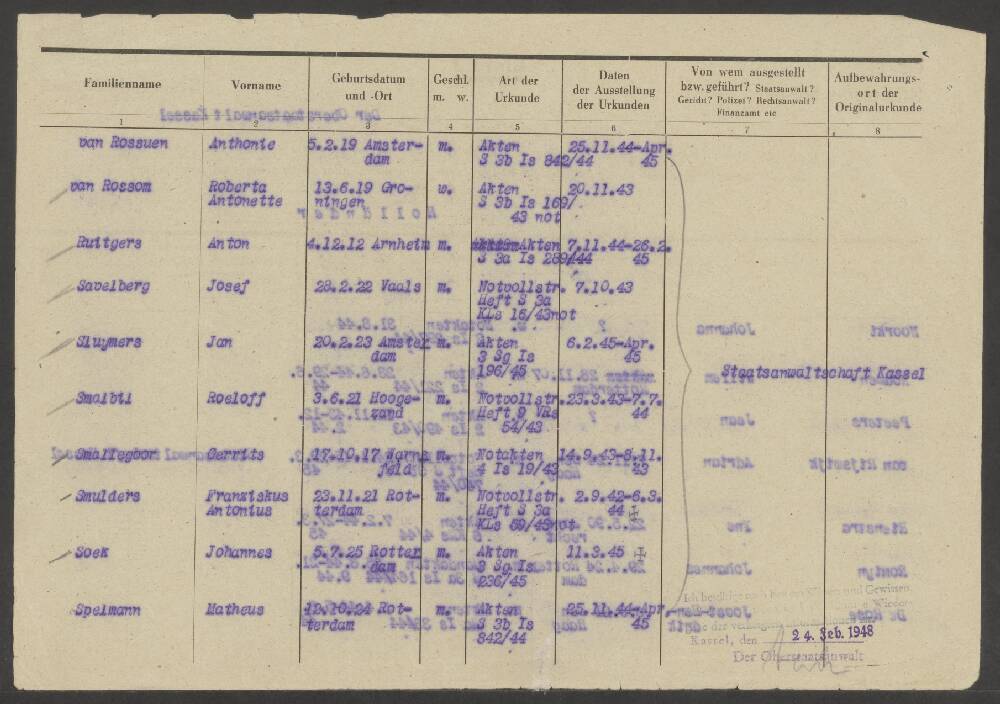 Familienname Vorname Geburtsdatum und -Ort Geschl. m. w. Art der Urkunde Daten der Ausstellung der Urkunden Von wem ausgestellt bzw. geführt? Staatsanwalt? Gericht? Polizei? Rechtsanwalt? Finanzamt etc Aufbewahrungs- ort der Originalurkunde
1 2 3 4 5 6 7 8
van Rossuen Anthonie 5.2.19 Amster- m. Akten 25.11.44-Apr.
dam S 3b Is 842/44 45
van Rossom Roberta 13.6.19 Gro- w. Akten 20.11.43
Antonette ningen S 3b Is 169/
43 not
Ruttgers Anton 4.12.12 Arnheim m. Akten 7.11.44-26.2.
S 3a Is 289/44 45
Savelberg Josef 28.2.22 Vaals m. Notvollstr. 7.10.43
Heft S 3a
KLs 16/43not
Sluymers Jan 20.2.23 Amster m. Akten 6.2.45-Apr.
dam 3 Sg Is 45
196/45
Staatsanwaltschaft Kassel
Smaibti Roeloff 3.6.21 Hooge- m. Notvollstr. 23.3.43-7.7.
zand Heft 9 VRs 44
54/43
Smallegoor Gerrits 17.10.17 Warns m. Notakten 14.9.43-8.11.
feld 4 Is 19/43 43
Smulders Franziskus 23.11.21 Rot- m. Notvollstr. 2.9.42-6.3.
Antonius terdam Heft S 3a 44
KLs 59/43not
Soek Johannes 5.7.25 Rotter m. Akten 11.3.45
dam 3 Sg Is
236/45
Spelmann Matheus 12.10.24 Rot- m. Akten 25.11.44-Apr.
terdam S 3b Is 45
842/44
Kassel, den 24. Feb. 1948
Der Oberstaatsanwalt